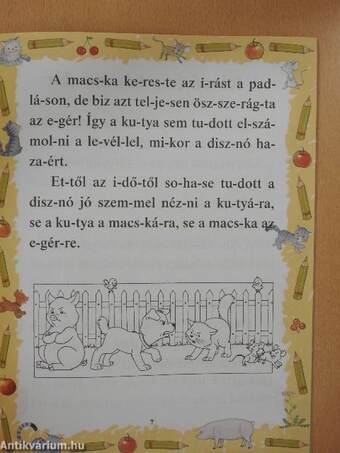 A macs-ka ke-res-te az í-rást a pad-
lá-son, de biz azt tel-je-sen ösz-sze-rág-ta
az e-gér! Így a ku-tya sem tu-dott el-szá-
mol-ni a le-vél-lel, mi-kor a disz-nó ha-
za-ért.
Et-től az i-dő-től so-ha-se tu-dott a
disz-nó jó szem-mel néz-ni a ku-tyá-ra,
se a ku-tya a macs-ká-ra, se a macs-ka az
e-gér-re.
7
Antikvárium.hu